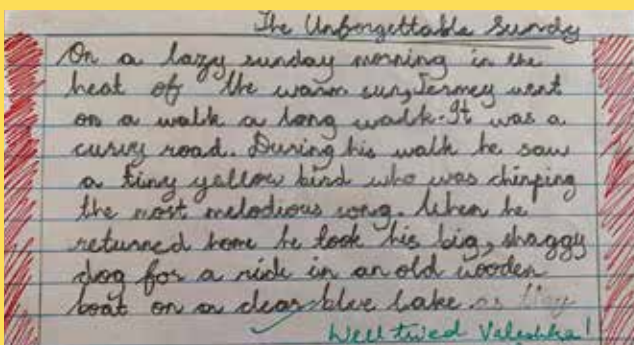 The Unforgettable Sundy
On a lazy sunday morning in the
heat of the warm sun, Jermey went
on a walk a long walk. It was a
curvy road. During his walk he saw
a tiny yellow bird who was chirping
the most melodious song. When he
returned home he took his big, shaggy
dog for a ride in an old wooden
boat on a clear blue lake.
Well tried